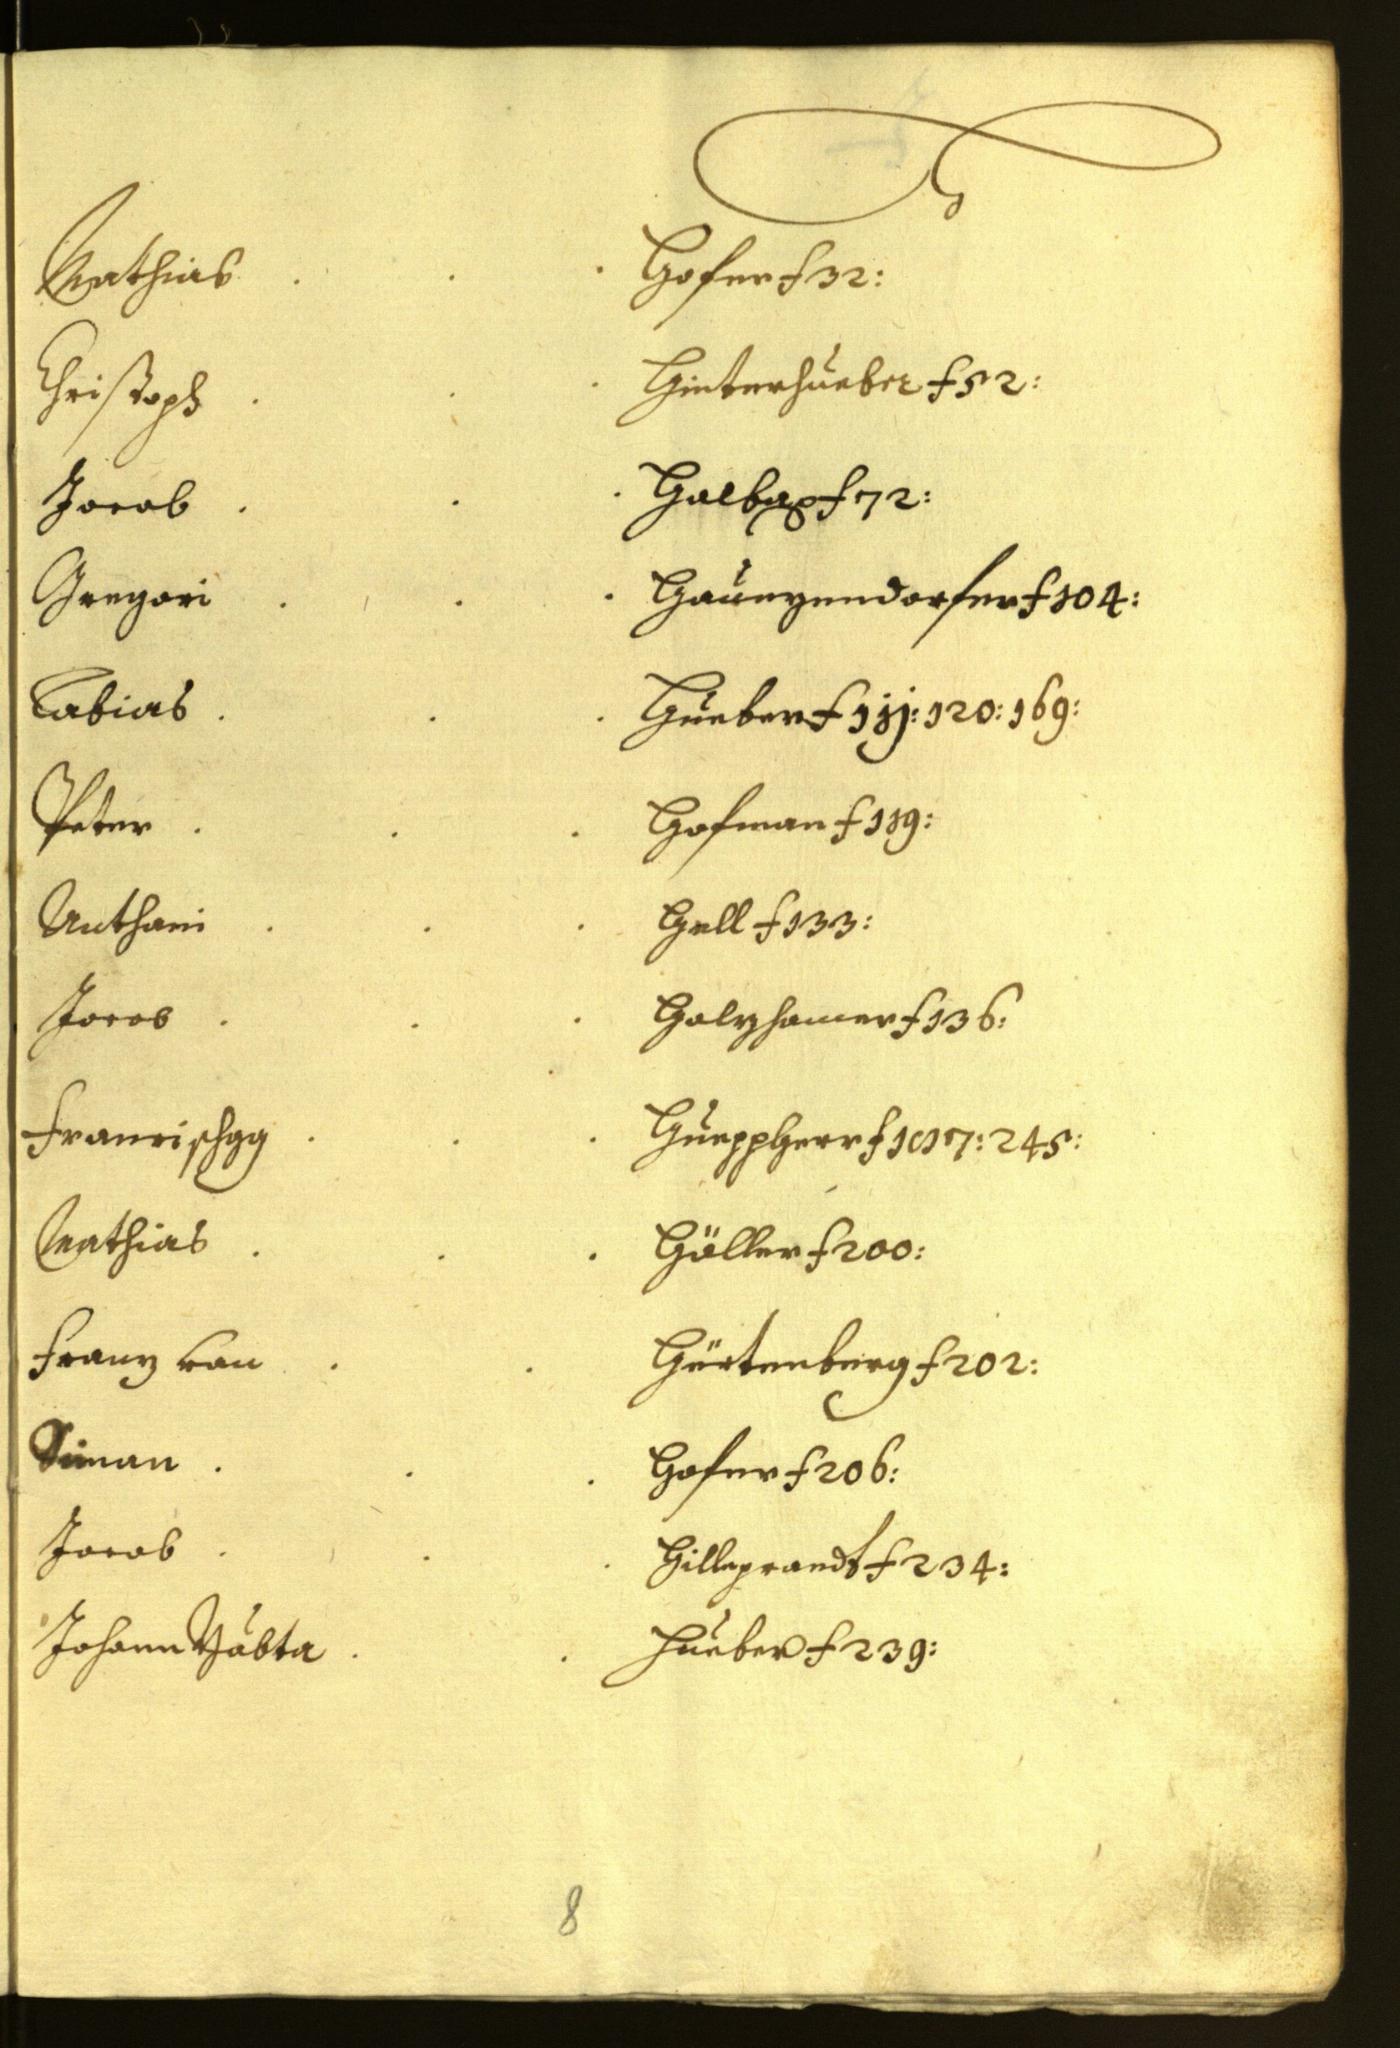 Mathias . . . Hofer f 32:
Christoph . . . Hinterhueber f 52:
Jacob . . . f 72:
Gregori . . . Haunzendorfer f 104:
Tobias . . . Hueber f 111: 120: 169:
Peter . . . Hofman f 119:
Anthoni . . . Hell f 133:
Jacob . . . Holzhamer f 136:
Francischgg . . . Hueppherr f 245:
Mathias . . . Höller f 200:
Franz von . . Hürtenberg f 202:
Siman . . . Hofer f 206:
Jacob . . . Hilleprandt f 234:
Johann Päbta . . Hueber f 239:
8